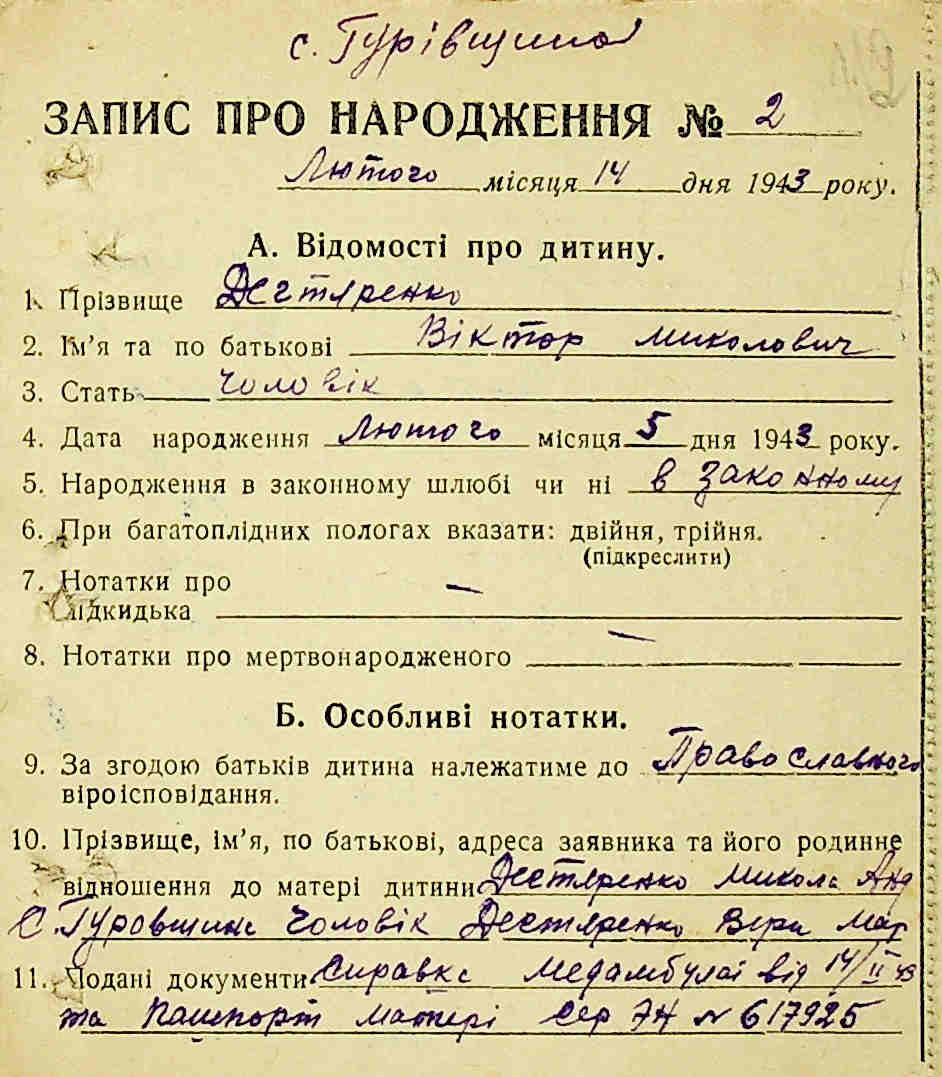 с. Гурівщина
ЗАПИС ПРО НАРОДЖЕННЯ № 2
Лютого місяця 14 дня 1943 року.
А. Відомості про дитину.
1. Прізвище Дегтяренко
2. Ім'я та по батькові Віктор Миколович
3. Стать чоловік
4. Дата народження Лютого місяця 5 дня 1943 року.
5. Народження в законному шлюбі чи ні в законному
6. При багатоплідних пологах вказати: двійня, трійня.
(підкреслити)
7. Нотатки про
підкидька —
8. Нотатки про мертвонародженого —
Б. Особливі нотатки.
9. За згодою батьків дитина належатиме до Православного
віроісповідання.
10. Прізвище, ім'я, по батькові, адреса заявника та його родинне
відношення до матері дитини Дегтяренко Микола Анд
С. Гуровщина Чоловік Дегтяренко Вери Мар
11. Подані документи Справка Медамбулаї від 14/II 43
та Пашпорт матері сер ЭН № 617925